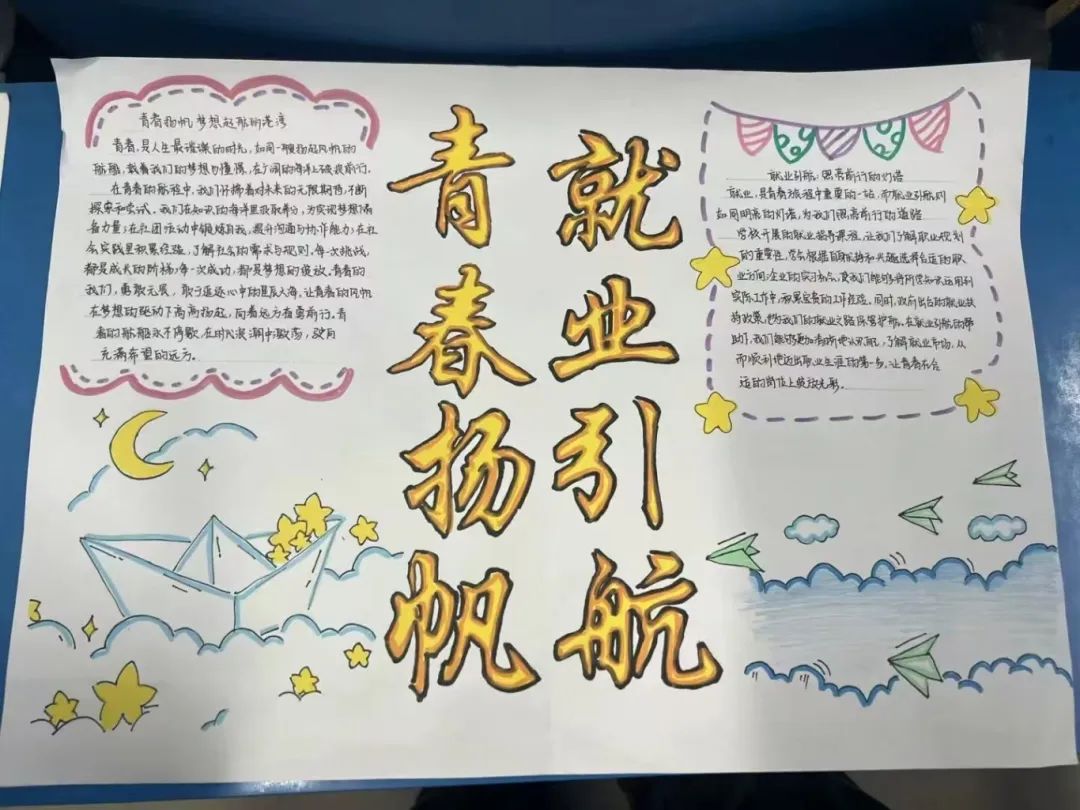 青春扬帆 梦想起航的港湾
青春，是人生最璀璨的时光，如同一艘扬起风帆的
船舶，载着我们的梦想与憧憬，在广阔的海洋上破浪前行。
在青春的旅程中，我们怀揣着对未来的无限期待，不断
探索和尝试。我们在知识的海洋里汲取养分，为实现梦想储
备力量；在社团活动中锻炼自我，提升沟通与协作能力；在社
会实践里积累经验，了解社会的需求与规则。每一次挑战，
都是成长的阶梯；每一次成功，都是梦想的绽放。青春的
我们，勇敢无畏，敢于追逐心中的星辰大海。让青春的风帆
在梦想的驱动下高高扬起，向着远方奋勇前行。青
春的船舶永不停歇，在时代浪潮中激荡，驶向
充满希望的远方。
青春扬帆
就业引航
就业引航：照亮前行的灯塔
就业，是青春旅程中重要的一站，而就业引航则
如同明亮的灯塔，为我们照亮前行的道路
学校开展的就业指导课程，让我们了解职业规划
的重要性，学会根据自身优势和兴趣选择合适的职
业方向；企业的实习机会，使我们能够将所学知识运用到
实际工作中，积累宝贵的工作经验。同时，政府出台的就业扶
持政策，也为我们的就业之路保驾护航。在就业引航的帮
助下，我们能够更加清晰地认识自己，了解就业市场，从
而顺利地迈出职业生涯的第一步，让青春在合
适的岗位上绽放光彩。